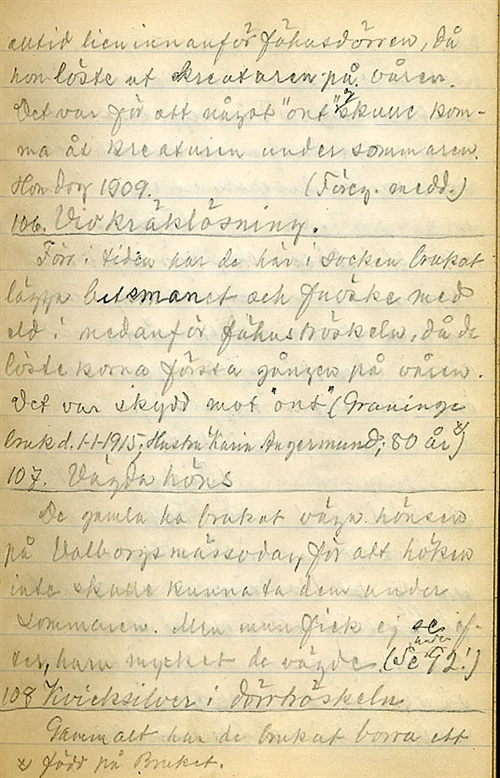 alltid lien innanför fähusdörren, då
hon löste ut kreaturen på våren.
Det var för att något "ont" ej skulle kom-
ma åt kreaturen under sommaren.
Hon dog 1909. (Föreg. medd.)
106. Vid kräklösning.
Förr i tiden har de här i socken brukat
lägga betsmanet och fnöske med
eld i nedanför fähuströskeln, då de
löste korna första gången på våren.
Det var skydd mot "ont" (Graninge
bruk d. 1-1-1915, Hustru Karin Angermund, 80 år x)
107. Vägda höns
De gamla ha brukat väga hönsen
på Valborgsmässodag, för att höken
inte skulle kunna ta dem under
sommaren. Men man fick ej se ef-
ter, huru mycket de vägde. (Se under 92!)
108 Kvicksilver i dörrtröskeln
Gammalt har de brukat borra ett
x) född på Bruket.